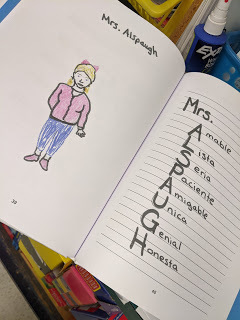 Mrs. Alspaugh
Mrs.
Amable
Lista
Seria
Paciente
Amigable
Unica
Genial
Honesta
EXP